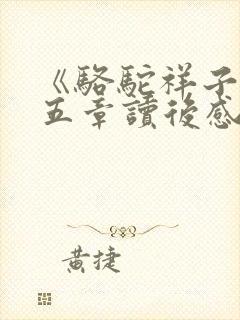 《駱駝祥子
五章讀後感
黄捷